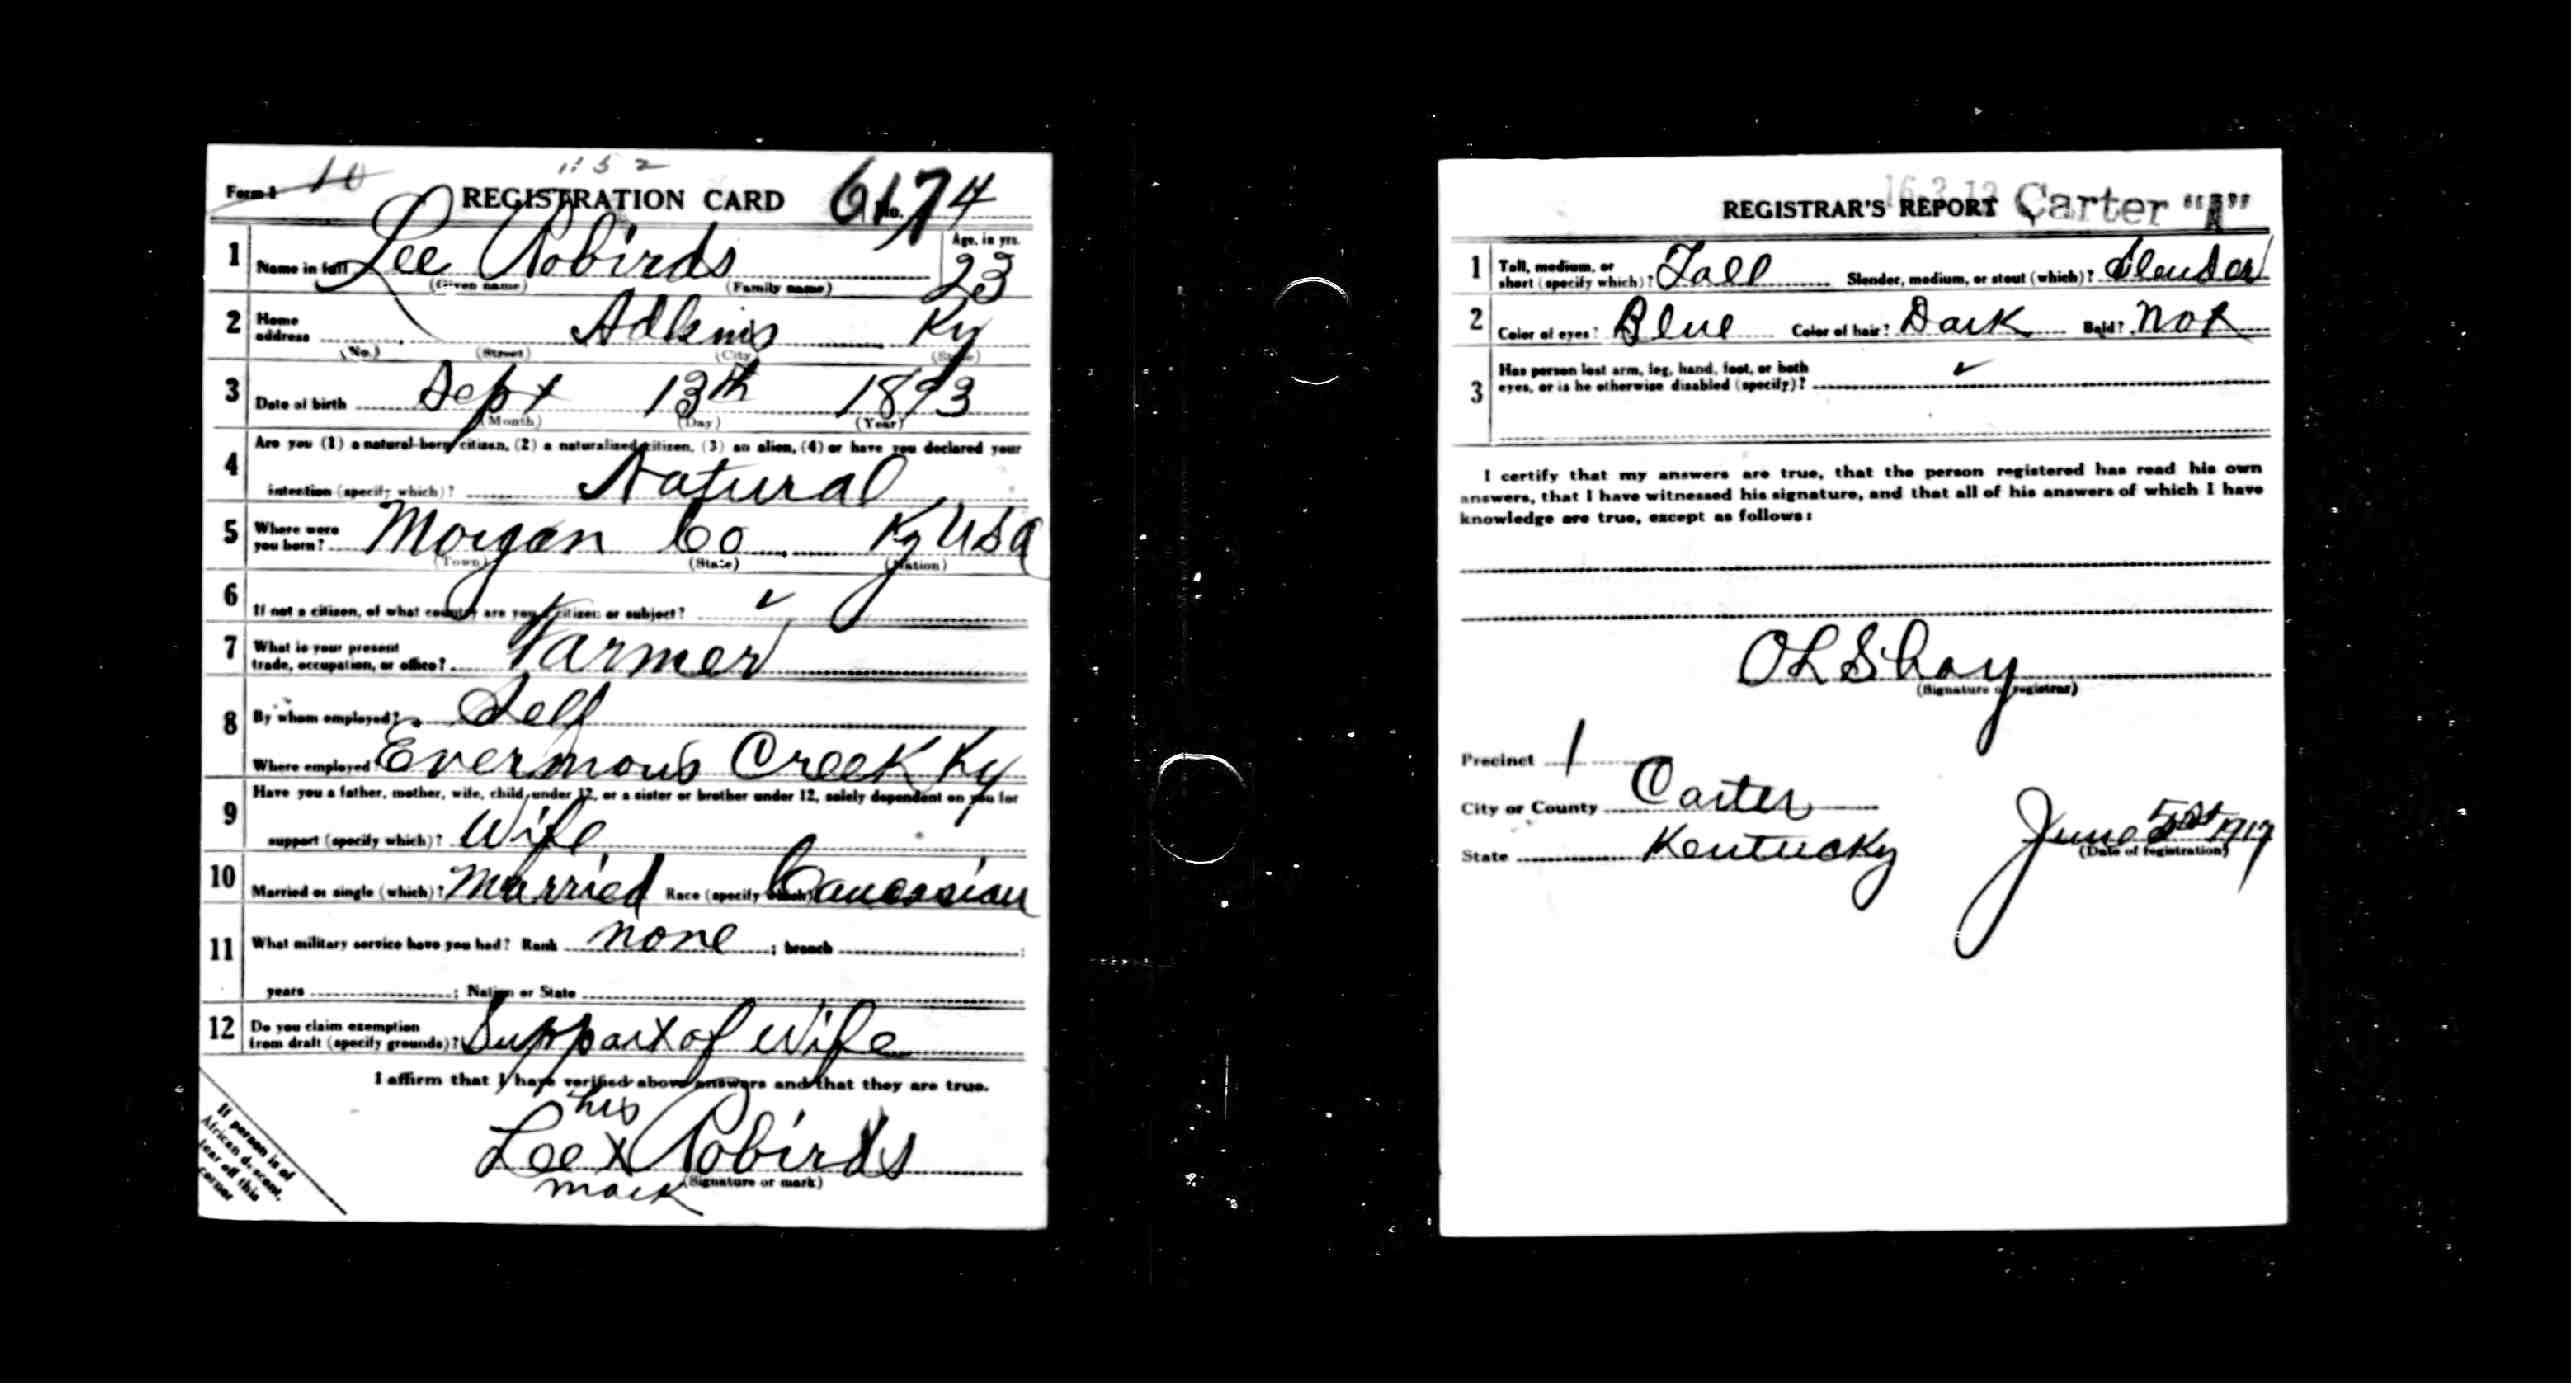 Form 1 10 1152
REGISTRATION CARD No. 6174
1 Name in full Lee Robirds Age, in yrs. 23
(Given name) (Family name)
2 Home address Adkins Ky
(No.) (Street) (City) (State)
3 Date of birth Sept 13th 1893
(Month) (Day) (Year)
4 Are you (1) a natural-born citizen, (2) a naturalized citizen, (3) an alien, (4) or have you declared your
intention (specify which)? Natural
5 Where were you born? Morgan Co Ky USA
(Town) (State) (Nation)
6 If not a citizen, of what country are you a citizen or subject? ✓
7 What is your present trade, occupation, or office? Farmer
8 By whom employed? Self
Where employed? Evermons Creek Ky
9 Have you a father, mother, wife, child under 12, or a sister or brother under 12, solely dependent on you for
support (specify which)? Wife
10 Married or single (which)? Married Race (specify which)? Caucasian
11 What military service have you had? Rank none ; branch ;
years ; Nation or State
12 Do you claim exemption from draft (specify grounds)? Support of Wife
I affirm that I have verified above answers and that they are true.
his
Lee x Robirds
mark (Signature or mark)
If person is of
African descent,
tear off this
corner
REGISTRAR'S REPORT 16-3-12 Carter "A"
1 Tall, medium, or short (specify which)? Tall Slender, medium, or stout (which)? Slender
2 Color of eyes? Blue Color of hair? Dark Bald? Not
3 Has person lost arm, leg, hand, foot, or both eyes, or is he otherwise disabled (specify)? ✓
I certify that my answers are true, that the person registered has read his own
answers, that I have witnessed his signature, and that all of his answers of which I have
knowledge are true, except as follows:
O L Shay
(Signature of registrar)
Precinct 1
City or County Carter
State Kentucky June 5 1917
(Date of registration)